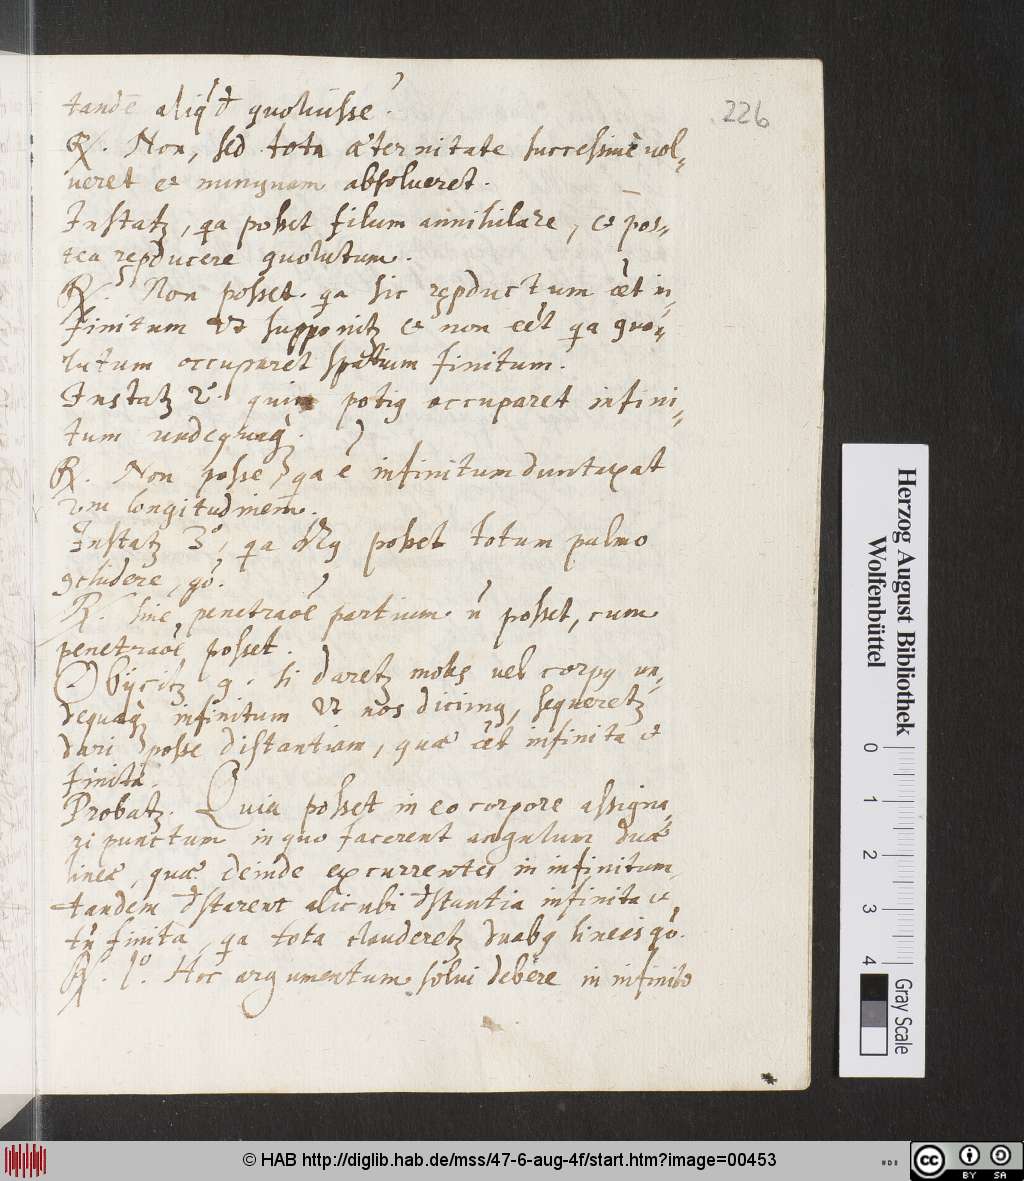 tandẽ aliqd quoluisse?
226
R. Non, sed tota æternitate successiuè uol-
ueret et nunquam absolueret.
Instatz, qa posset filum annihilare, et pos-
tea repducere quolutum.
R. Non posset. qa sic repductum eet in-
finitum ut supponitz et non eet qa quo-
lutum occuparet spatium finitum.
Instatz 2º. quin potiq occuparet infini-
tum undequaq.
R. Non posse, qa ẽ infinitum duntaxat
in longitudinem.
Instatz 3º, qa posset totum palmo
gcludere, gº.
R. sine penetraõe partium ñ posset, cum
penetraõe posset.
Obijcitz 9. si daretz moles uel corpq un-
dequaq infinitum ut nos dicimq, sequeretz
dari posse distantiam, quæ eet infinita et
finita.
Probatz. Quia posset in eo corpore assigna-
ri punctum in quo facerent angulum duæ
lineæ, quæ deinde excurrentes in infinitum
tandem dstarent alicubi dstantia infinita et
tñ finita, qa tota clauderetz duabq lineis gº.
R. 1º. Hoc argumentum solui debere in infinito
Herzog August Bibliothek
Wolfenbüttel
0 1 2 3 4
Gray Scale
© HAB http://diglib.hab.de/mss/47-6-aug-4f/start.htm?image=00453
cc BY SA